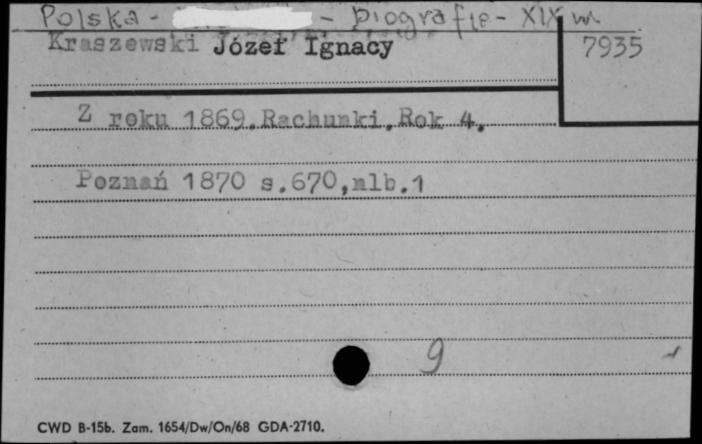 Polska - - biografie - XIX w.
Kraszewski Józef Ignacy
7935
Z roku 1869.Rachunki.Rok 4.
Poznań 1870 s.670,nlb.1
9
CWD B-15b. Zam. 1654/Dw/On/68 GDA-2710.